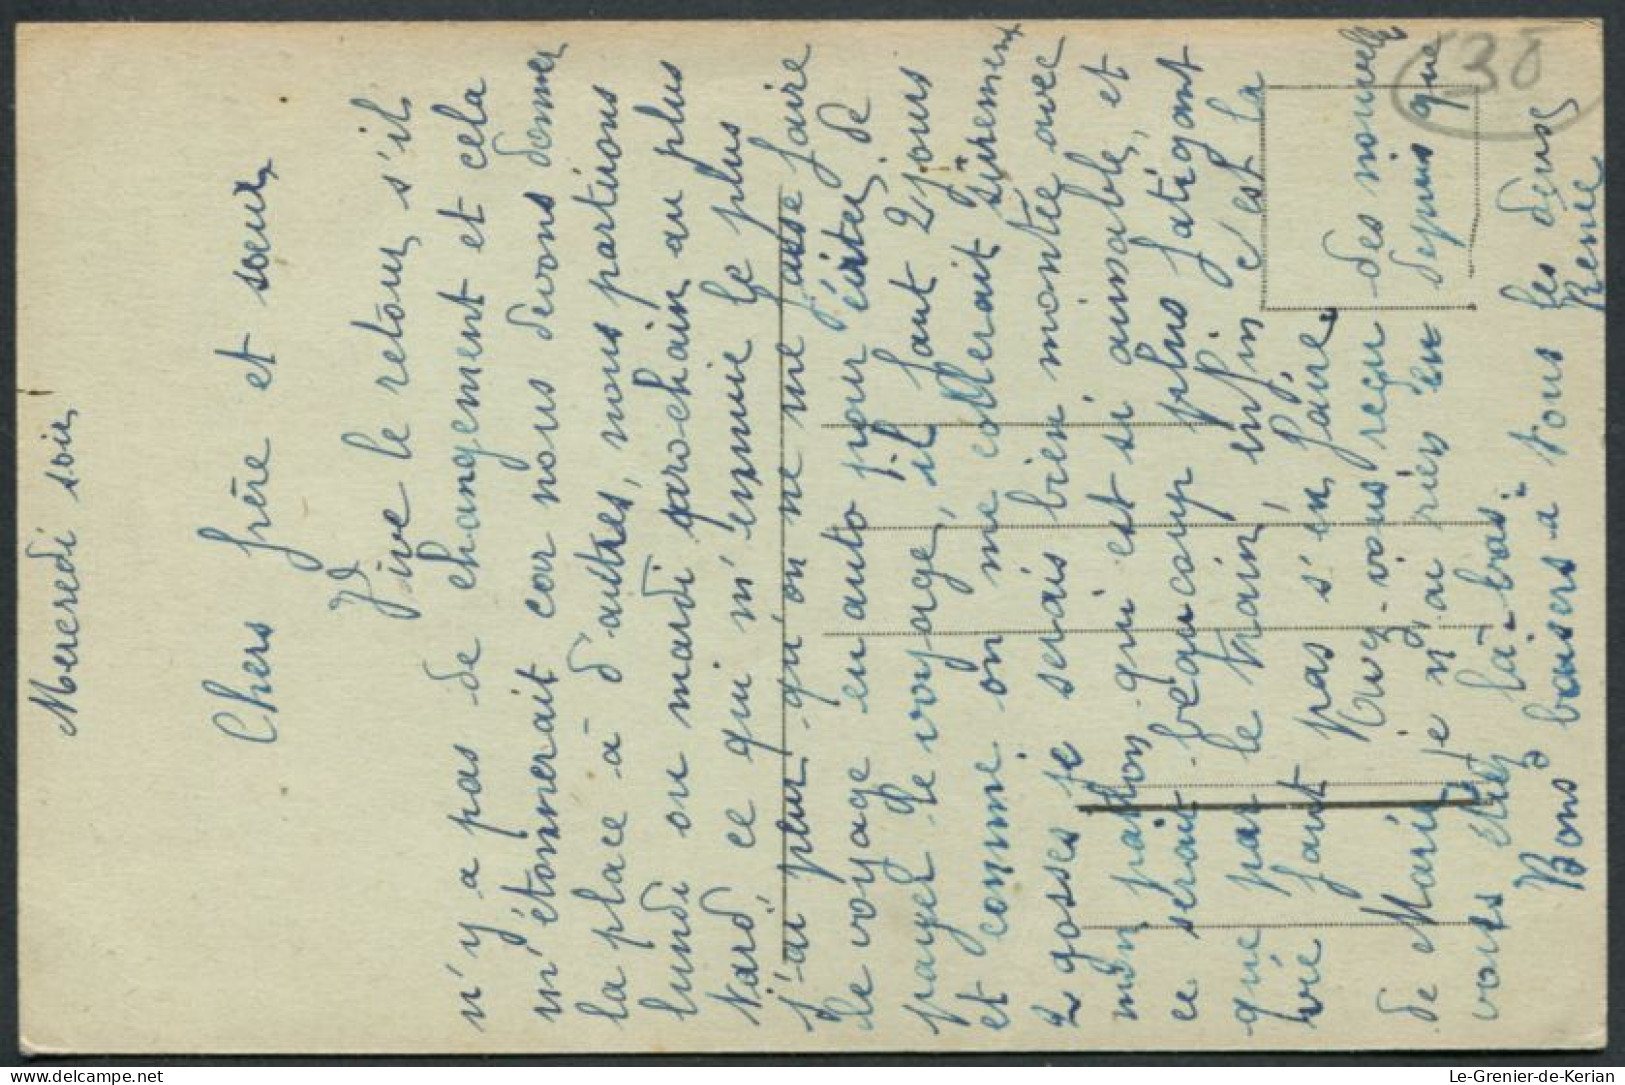 Mercredi soir
Chers frère et soeur
Vive le retour, s'il
n'y a pas de changement et cela
m'étonnerait car nous devons donner
la place à d'autres, nous partirons
lundi ou mardi prochain au plus
tard ce qui m'ennuie le plus
j'ai peur qu'on ne me fasse faire
le voyage en auto pour éviter de
payer le voyage, il faut 2 jours
et comme on me collerait sûrement
2 gosses je serais bien montée avec
mon patron qui est si aimable, et
ce serait beaucoup plus fatigant
que par le train, enfin c'est la
vie faut pas s'en faire.
Avez-vous reçu des nouvelles
de Marie je n'ai rien eu depuis que
vous êtes là-bas.
Bons baisers à tous les deux
Renée
38
Le-Grenier-de-Kerian